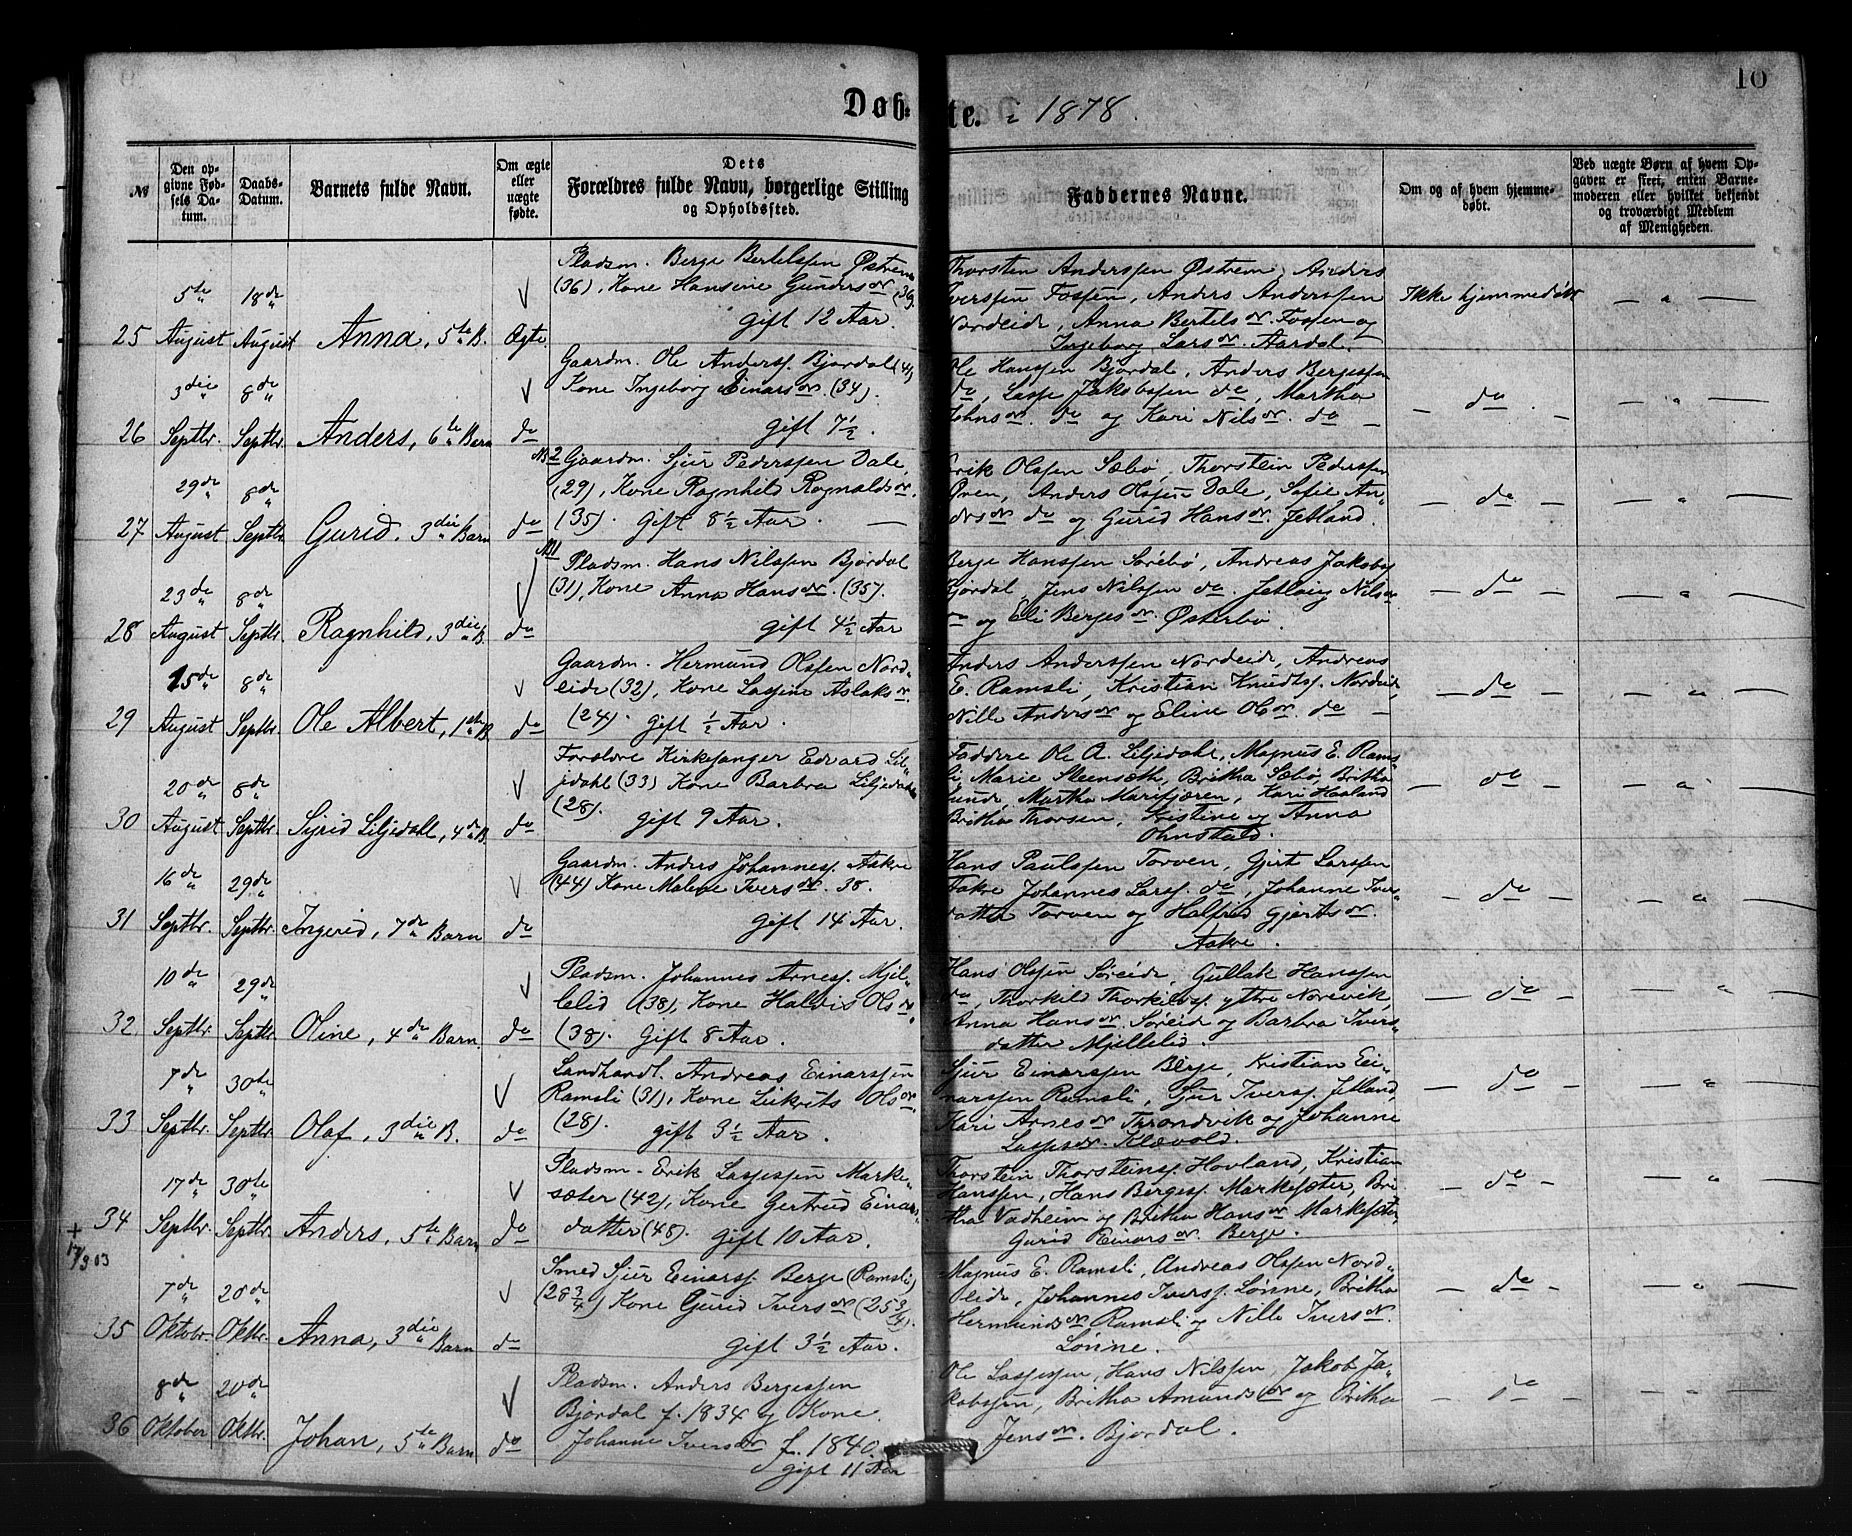 10
Døbte. i 1878.
№
Den opgivne Fødsels Datum.
Daabs-Datum.
Barnets fulde Navn.
Om ægte eller uægte fødte.
Dets Forældres fulde Navn, borgerlige Stilling og Opholdssted.
Faddernes Navne.
Om og af hvem hjemmedøbt.
Ved uægte Børn af hvem Opgaven er skeet, enten Barnemoderen eller hvilket bekjendt og troværdigt Medlem af Menigheden.
25 5te August 18de August Anna, 5te B. Ægte
Pladsm. Berge Bertelssen Østrem
(36), Kone Hansine Gundersdr (36)
gift 12 Aar.
Thorsten Anderssen Østrem, Anders
Iverssen Fossen, Anders Anderssen
Nordeide, Anna Bertelsdr. Fossen og
Ingeborg Larsdr. Aardal.
Ikke hjemmedøbt — " —
26 3die Septbr. 8de Septbr. Anders, 6te Barn do
Gaardm. Ole Anderss. Bjordal (41)
Kone Ingeborg Einarsdr. (34)
gift 7½.
Ole Hanssen Bjordal, Anders Bergessen
do, Lasse Jakobssen do, Martha
Johnsdr. do og Kari Nilsdr. do —
— do — — " —
27 29de August 8de Septbr. Gurid. 3die Barn do
№ 2 Gaardm. Sjur Pederssen Dale,
(29), Kone Ragnhild Ragnaldsdr.
(35). gift 8½ Aar. —
Erik Olssen Sæbø, Thorstein Pederssen
Øren, Anders Olssen Dale, Sofie An-
dersdr do og Gurid Hansdr. Jetland.
— do — — " —
28 23de August 8de Septbr. Ragnhild, 3die B. do
№ 1 Pladsm. Hans Nilssen Bjordal
(31), Kone Anna Hansdr. (35).
gift 4½ Aar
Berge Hanssen Sørebø, Andreas Jakobs.
Bjordal, Jens Nilssen do. Jetlaug Nilsdr
do og Eli Bergesdr. Østerbø.
— do — — " —
29 25de August 8de Septbr. Ole Albert, 1ste B. do
Gaardm. Hermund Olssen Nord-
eide (32), Kone Lassine Aslaksdr.
(24). gift ½ Aar.
Anders Anderssen Nordeide, Andreas
E. Ramsli, Kristian Knudts. Nordeide,
Nille Andersdr og Eline Olsdr. do —
— do — — " —
30 20de August 8de Septbr. Sigrid Liljedahl, 4de B. do
Kirkesanger Edvard Lil-
jedahl (33) Kone Barbra Liljedahl
(28). gift 9 Aar.
Faddere Ole A. Liljedahl, Magnus E. Rams-
li, Marie Steensæth, Britha Sæbø, Britha
Martha Marifjæren, Kari Haaland
Britha Thorsen, Kristine og Anna
Ohnstad.
— do — — " —
31 16de Septbr. 29de Septbr. Ingerid, 7de Barn do
Gaardm. Anders Johanness. Aakre
(44) Kone Malene Iversdr. 38.
gift 14 Aar.
Hans Paulssen Torven, Gjert Larssen
Aakre Johannes Larss. do, Johanne Ivers-
datter Torven og Halfrid Gjertsdr.
Aakre.
— do — — " —
32 10de Septbr. 29de Septbr. Oline, 4de Barn. do
Pladsm. Johannes Arness. Mjel-
lelid (38), Kone Halvis Olsdr.
(38). gift 8 Aar.
Hans Olssen Søreide, Gullak Hanssen
do, Thorkild Thorkilds. yttre Norevik,
Anna Hansdr. Søreid og Barbra Ivers-
datter Mjellelid.
— do — — " —
33 7de Septbr. 30te Septbr. Olaf, 3die B. do
Landhandl. Andreas Einarssen
Ramsli (31), Kone Olsdr.
(28). gift 3½ Aar.
Sjur Einarssen Berge, Kristian Ei-
narssen Ramsli, Sjur Iverss. Jetland,
Kari Arnesdr Throndvik og Johanne
Lassesdr. Klævold.
— do — — " —
34 17de Septbr. 30te Septbr. Anders, 5te Barn do
+ 17/3 03
Pladsm. Erik Lassessen Marke-
sæter (42), Kone Gertrud Einars-
datter (48). gift 10 Aar.
Thorstein Thorsteins. Hovland, Kristian
Hanssen, Hans Berges. Markesæter, Bri-
tha Vadheim og Britha Hansdr Markesæter
Gurid Einarsdr. Berge.
— do — — " —
35 7de Oktobr. 20de Oktbr. Anna, 3die Barn do
Smed Sjur Einarss. Berge (Ramsli)
(28 3/4) Kone Gurid Iversdr (25 3/4).
gift 3½ Aar.
Magnus E. Ramsli, Andreas Olssen Nord-
eide, Johannes Iverss. Lønne, Britha
Hermundsdr Ramsli og Nille Iversdr.
Lønne.
— do — — " —
36 8de Oktober 20de Oktbr. Johan, 5te Barn do
Pladsm. Anders Bergessen
Bjordal f. 1834 og Kone
Johanne Iversdr f. 1840.
gift 11 Aar
Ole Lassessen, Hans Nilssen, Jakob Ja-
kobssen, Britha Amundsdr og Britha
Jensdr. Bjordal.
— do — — " —